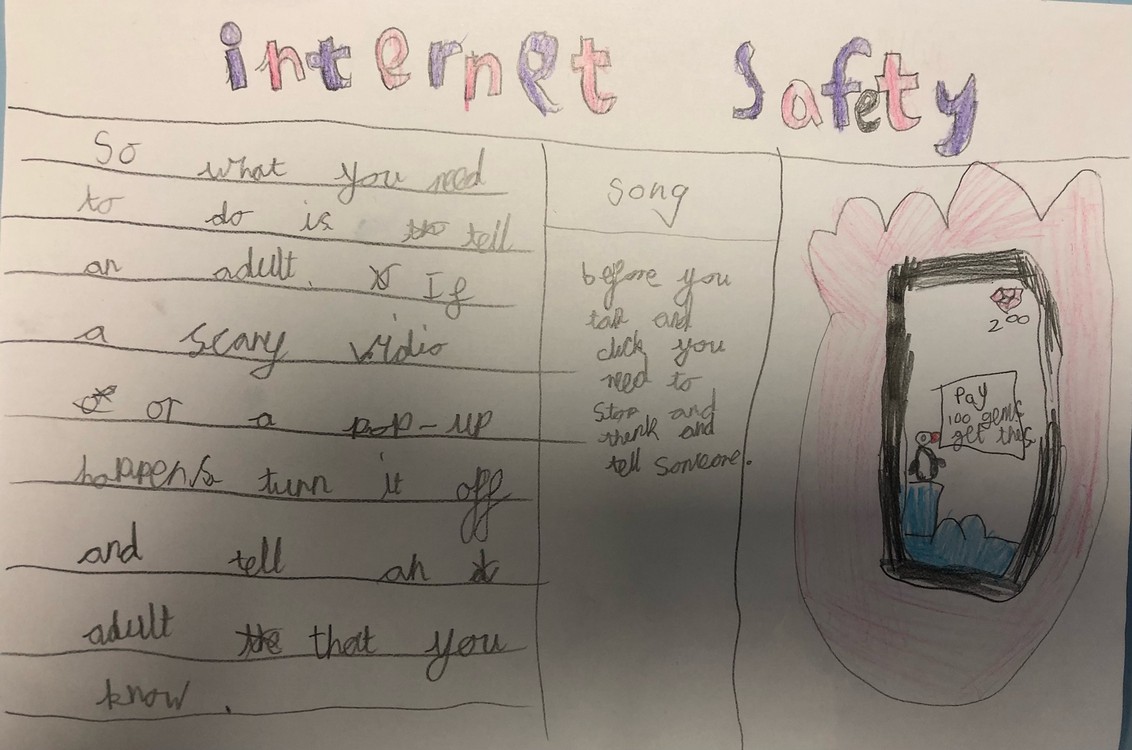 internet Safety
So what you need
to do is tell
an adult. If
a scary vidio
or a pop-up
happens turn it off
and tell an
adult that you
know.
Song
before you
tap and
click you
need to
Stop and
think and
tell someone.
200
Pay
100 gems
get this